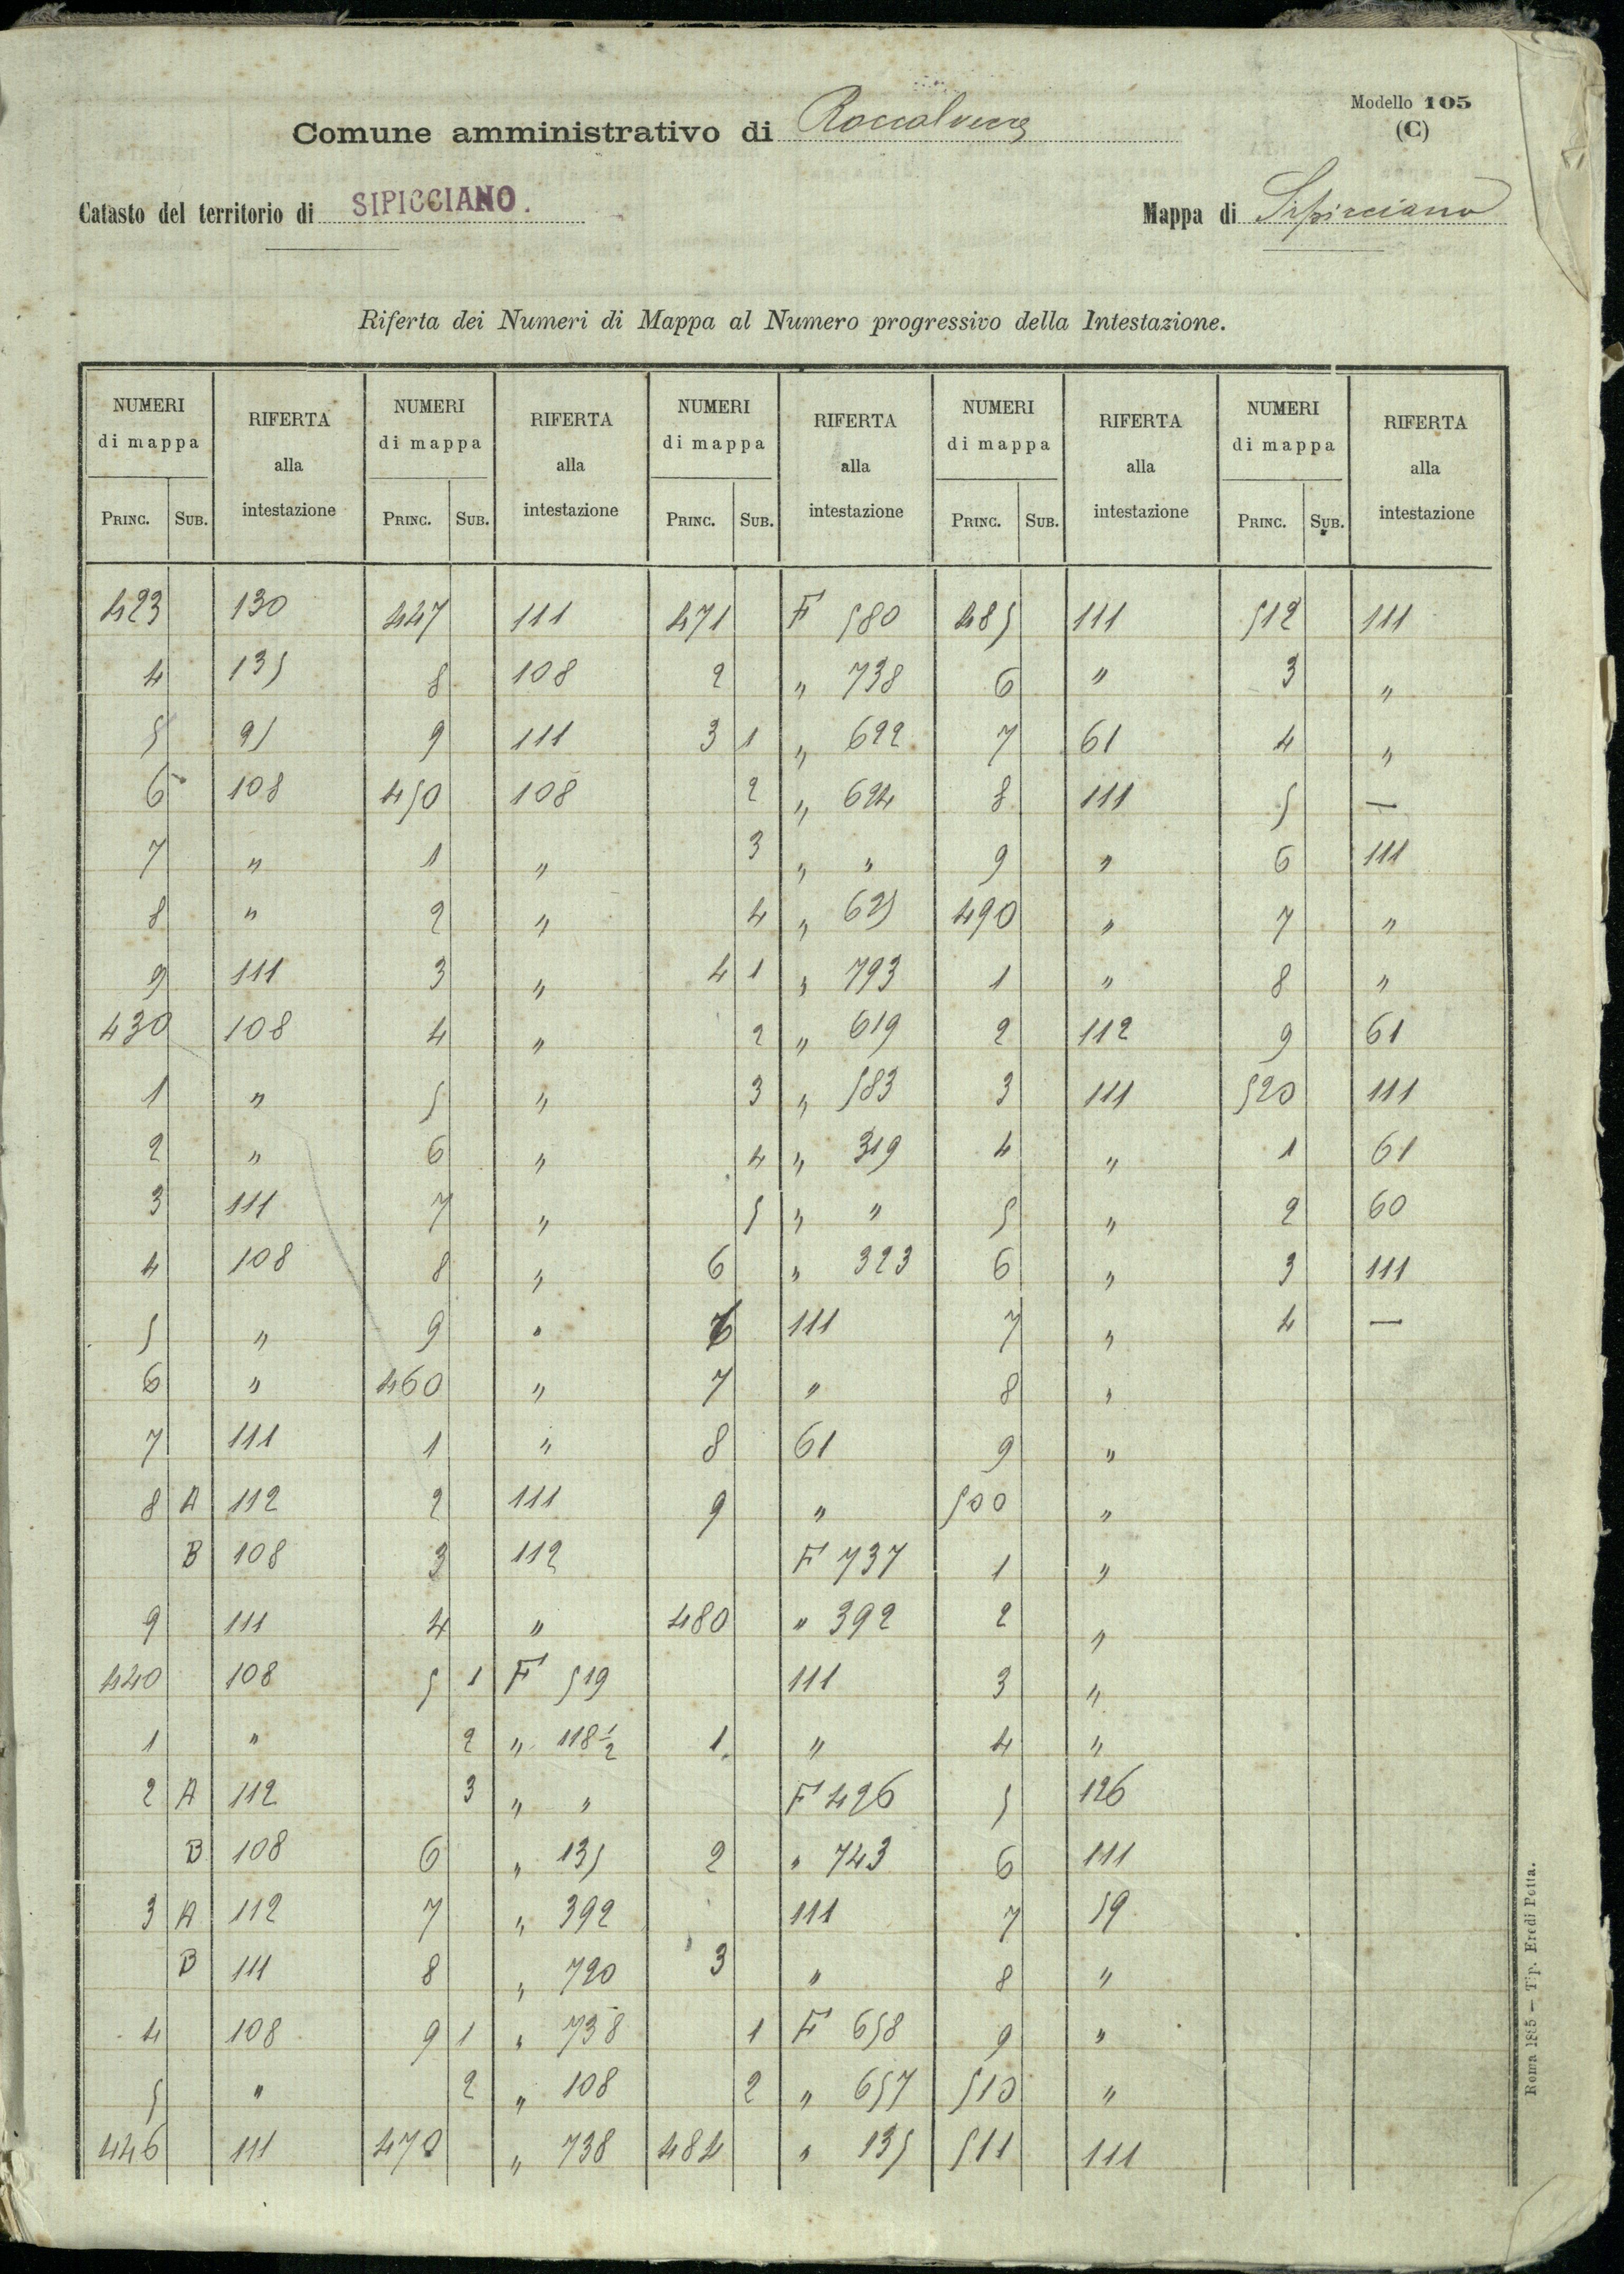 Modello 105
(C)
Comune amministrativo di Roccalvecce
Catasto del territorio di SIPICCIANO. Mappa di Sipicciano
Riferta dei Numeri di Mappa al Numero progressivo della Intestazione.
NUMERI di mappa RIFERTA alla intestazione NUMERI di mappa RIFERTA alla intestazione NUMERI di mappa RIFERTA alla intestazione NUMERI di mappa RIFERTA alla intestazione NUMERI di mappa RIFERTA alla intestazione
PRINC. SUB. PRINC. SUB. PRINC. SUB. PRINC. SUB. PRINC. SUB.
423 130 447 111 471 F 580 485 111 512 111
4 135 8 108 2 " 738 6 " 3 "
5 95 9 111 3 1 " 622 7 61 4 "
6 108 450 108 2 " 624 8 111 5 —
7 " 1 " 3 " " 9 " 6 111
8 " 2 " 4 " 625 490 " 7 "
9 111 3 " 4 1 " 793 1 " 8 "
430 108 4 " 2 " 619 2 112 9 61
1 " 5 " 3 " 583 3 111 520 111
2 " 6 " 4 " 319 4 " 1 61
3 111 7 " 5 " " 5 " 2 60
4 108 8 " 6 " 323 6 " 3 111
5 " 9 " 111 7 " 4 —
6 " 460 " 7 " 8 "
7 111 1 " 8 61 9 "
8 A 112 2 111 9 " 500 "
B 108 3 112 F 737 1 "
9 111 4 " 480 " 392 2 "
440 108 5 1 F 519 111 3 "
1 " 2 " 118 1/2 1 " 4 "
2 A 112 3 " " F 426 5 126
B 108 6 " 135 2 " 743 6 111
3 A 112 7 " 392 111 7 59
B 111 8 " 720 3 " 8 "
4 108 9 1 " 738 1 F 658 9 "
5 " 2 " 108 2 " 657 510 "
446 111 470 " 738 484 " 135 511 111
Roma 1885 — Tip. Eredi Botta.